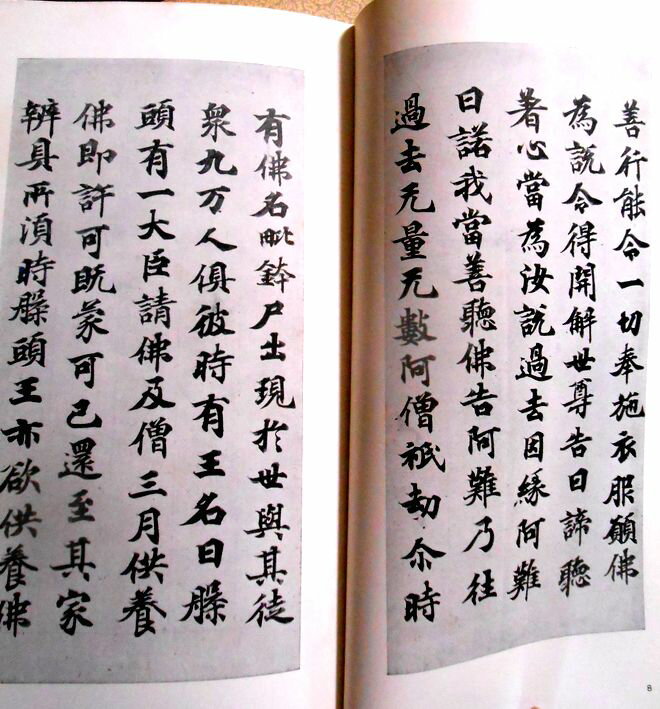 善行能令一切奉施衣服願佛
為說令得開解世尊告曰諦聽
著心當為汝說過去因緣阿難
曰諾我當善聽佛告阿難乃往
過去无量无數阿僧祇劫尒時
有佛名毗鉢尸出現扵世與其徒
衆九万人俱彼時有王名曰䐗
頭有一大臣請佛及僧三月供養
佛即許可既蒙可已還至其家
辦具所湏時䐗頭王亦欲供養佛
8